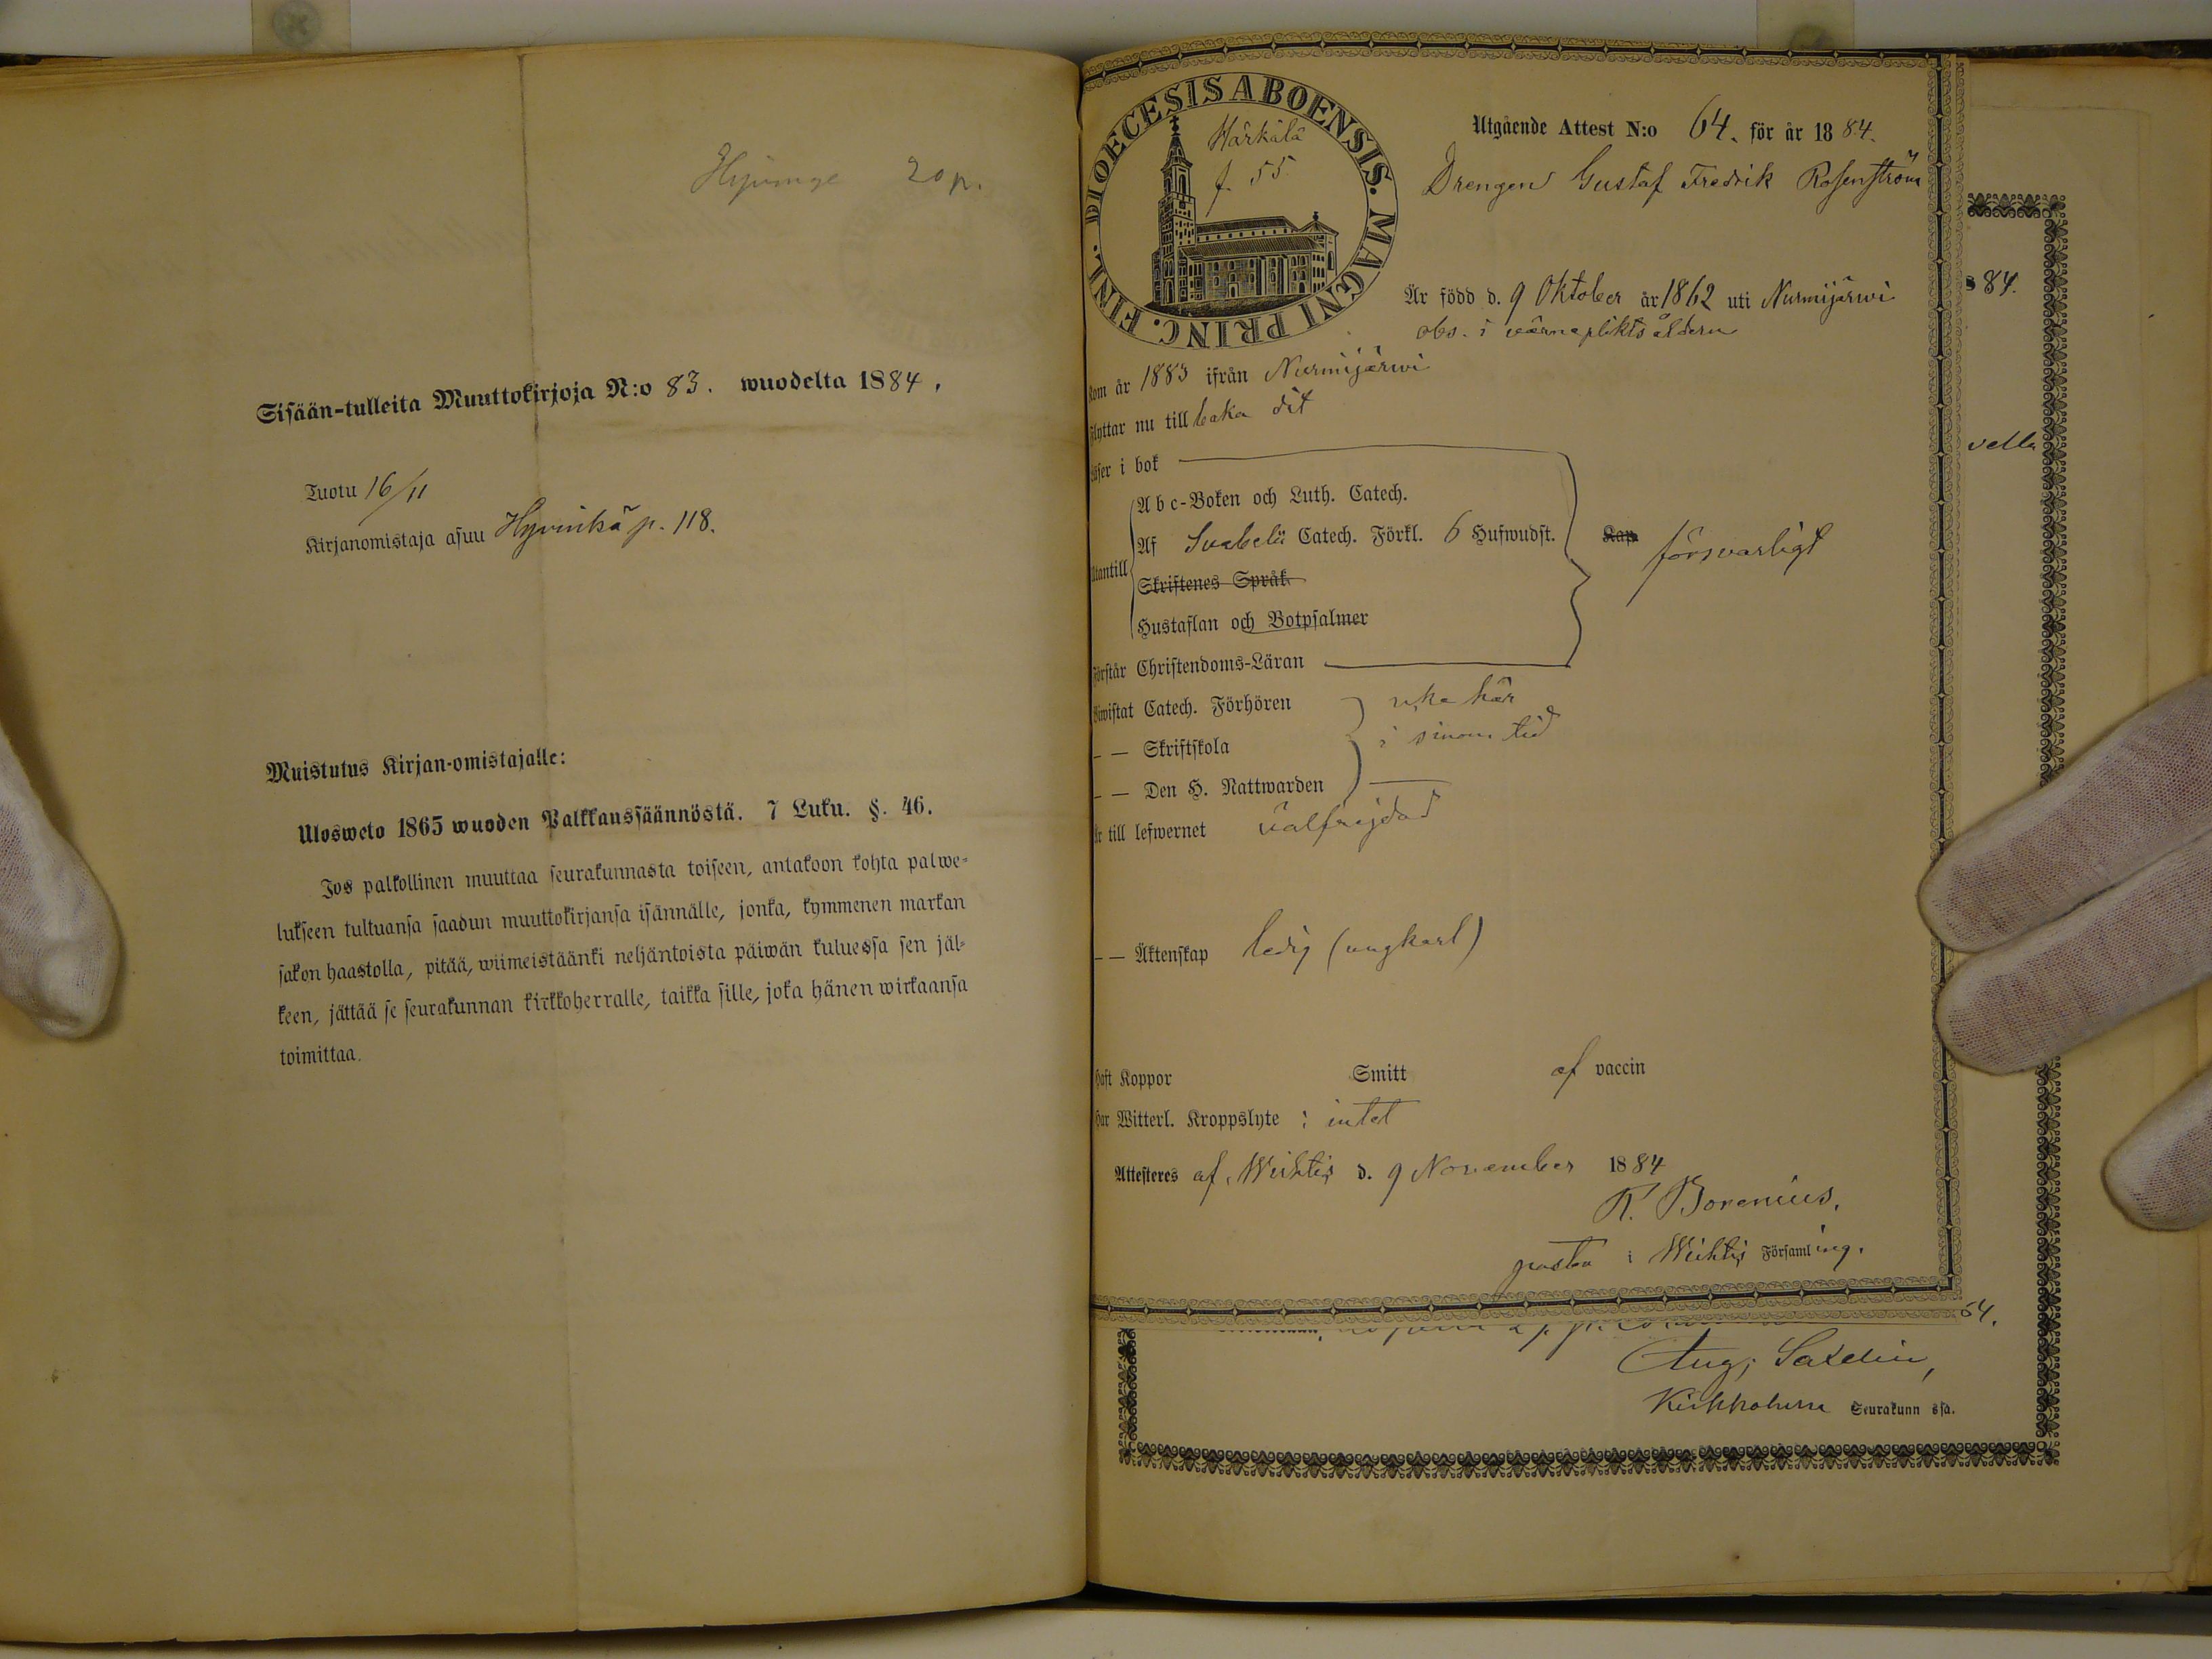 Hyvinge 20 p.
Sisään-tulleita Muuttokirjoja N:o 83. wuodelta 1884.
Tuotu 16/11
Kirjanomistaja asuu Hyvinkä p. 118.
Muistutus Kirjan-omistajalle:
Ulosweto 1865 wuoden Palkkaussäännöstä. 7 Luku. §. 46.
Jos palkollinen muuttaa seurakunnasta toiseen, antakoon kohta palwe-
lukseen tultuansa saadun muuttokirjansa isännälle, jonka, kymmenen markan
sakon haastolla, pitää, wiimeistäänki neljäntoista päiwän kuluessa sen jäl-
keen, jättää se seurakunnan kirkkoherralle, taikka sille, joka hänen wirkaansa
toimittaa.
FINL. DIOECESIS ABOENSIS. MAGNI PRINC.
Härkälä
f. 55
Utgående Attest N:o 64. för år 1884.
Drengen Gustaf Fredrik Rosenström
Är född d. 9 Oktober år 1862 uti Nurmijärwi
obs. i värnepliktsåldern
Kom år 1883 ifrån Nurmijärwi
Flyttar nu till baka dit
Läser i bok
A b c-Boken och Luth. Catech.
Af Svebelii Catech. Förkl. 6 Hufwudst. Kap. försvarligt
Utantill
Skriftenes Språk
Hustaflan och Botpsalmer
Förstår Christendoms-Läran
Biwistat Catech. Förhören
icke här
— — Skriftskola
i sinom tid
— — Den H. Nattwarden
Är till lefwernet välfrejdad
— — Äktenskap ledig (ungkarl)
Haft Koppor Smitt af vaccin
Har Witterl. Kroppslyte : intet
Attesteres af Wichtis d. 9 November 1884
R. Borenius,
pastor i Wichtis Församling.
84.
vella
Aug;
Kirkkoherra Seurakunnassa.